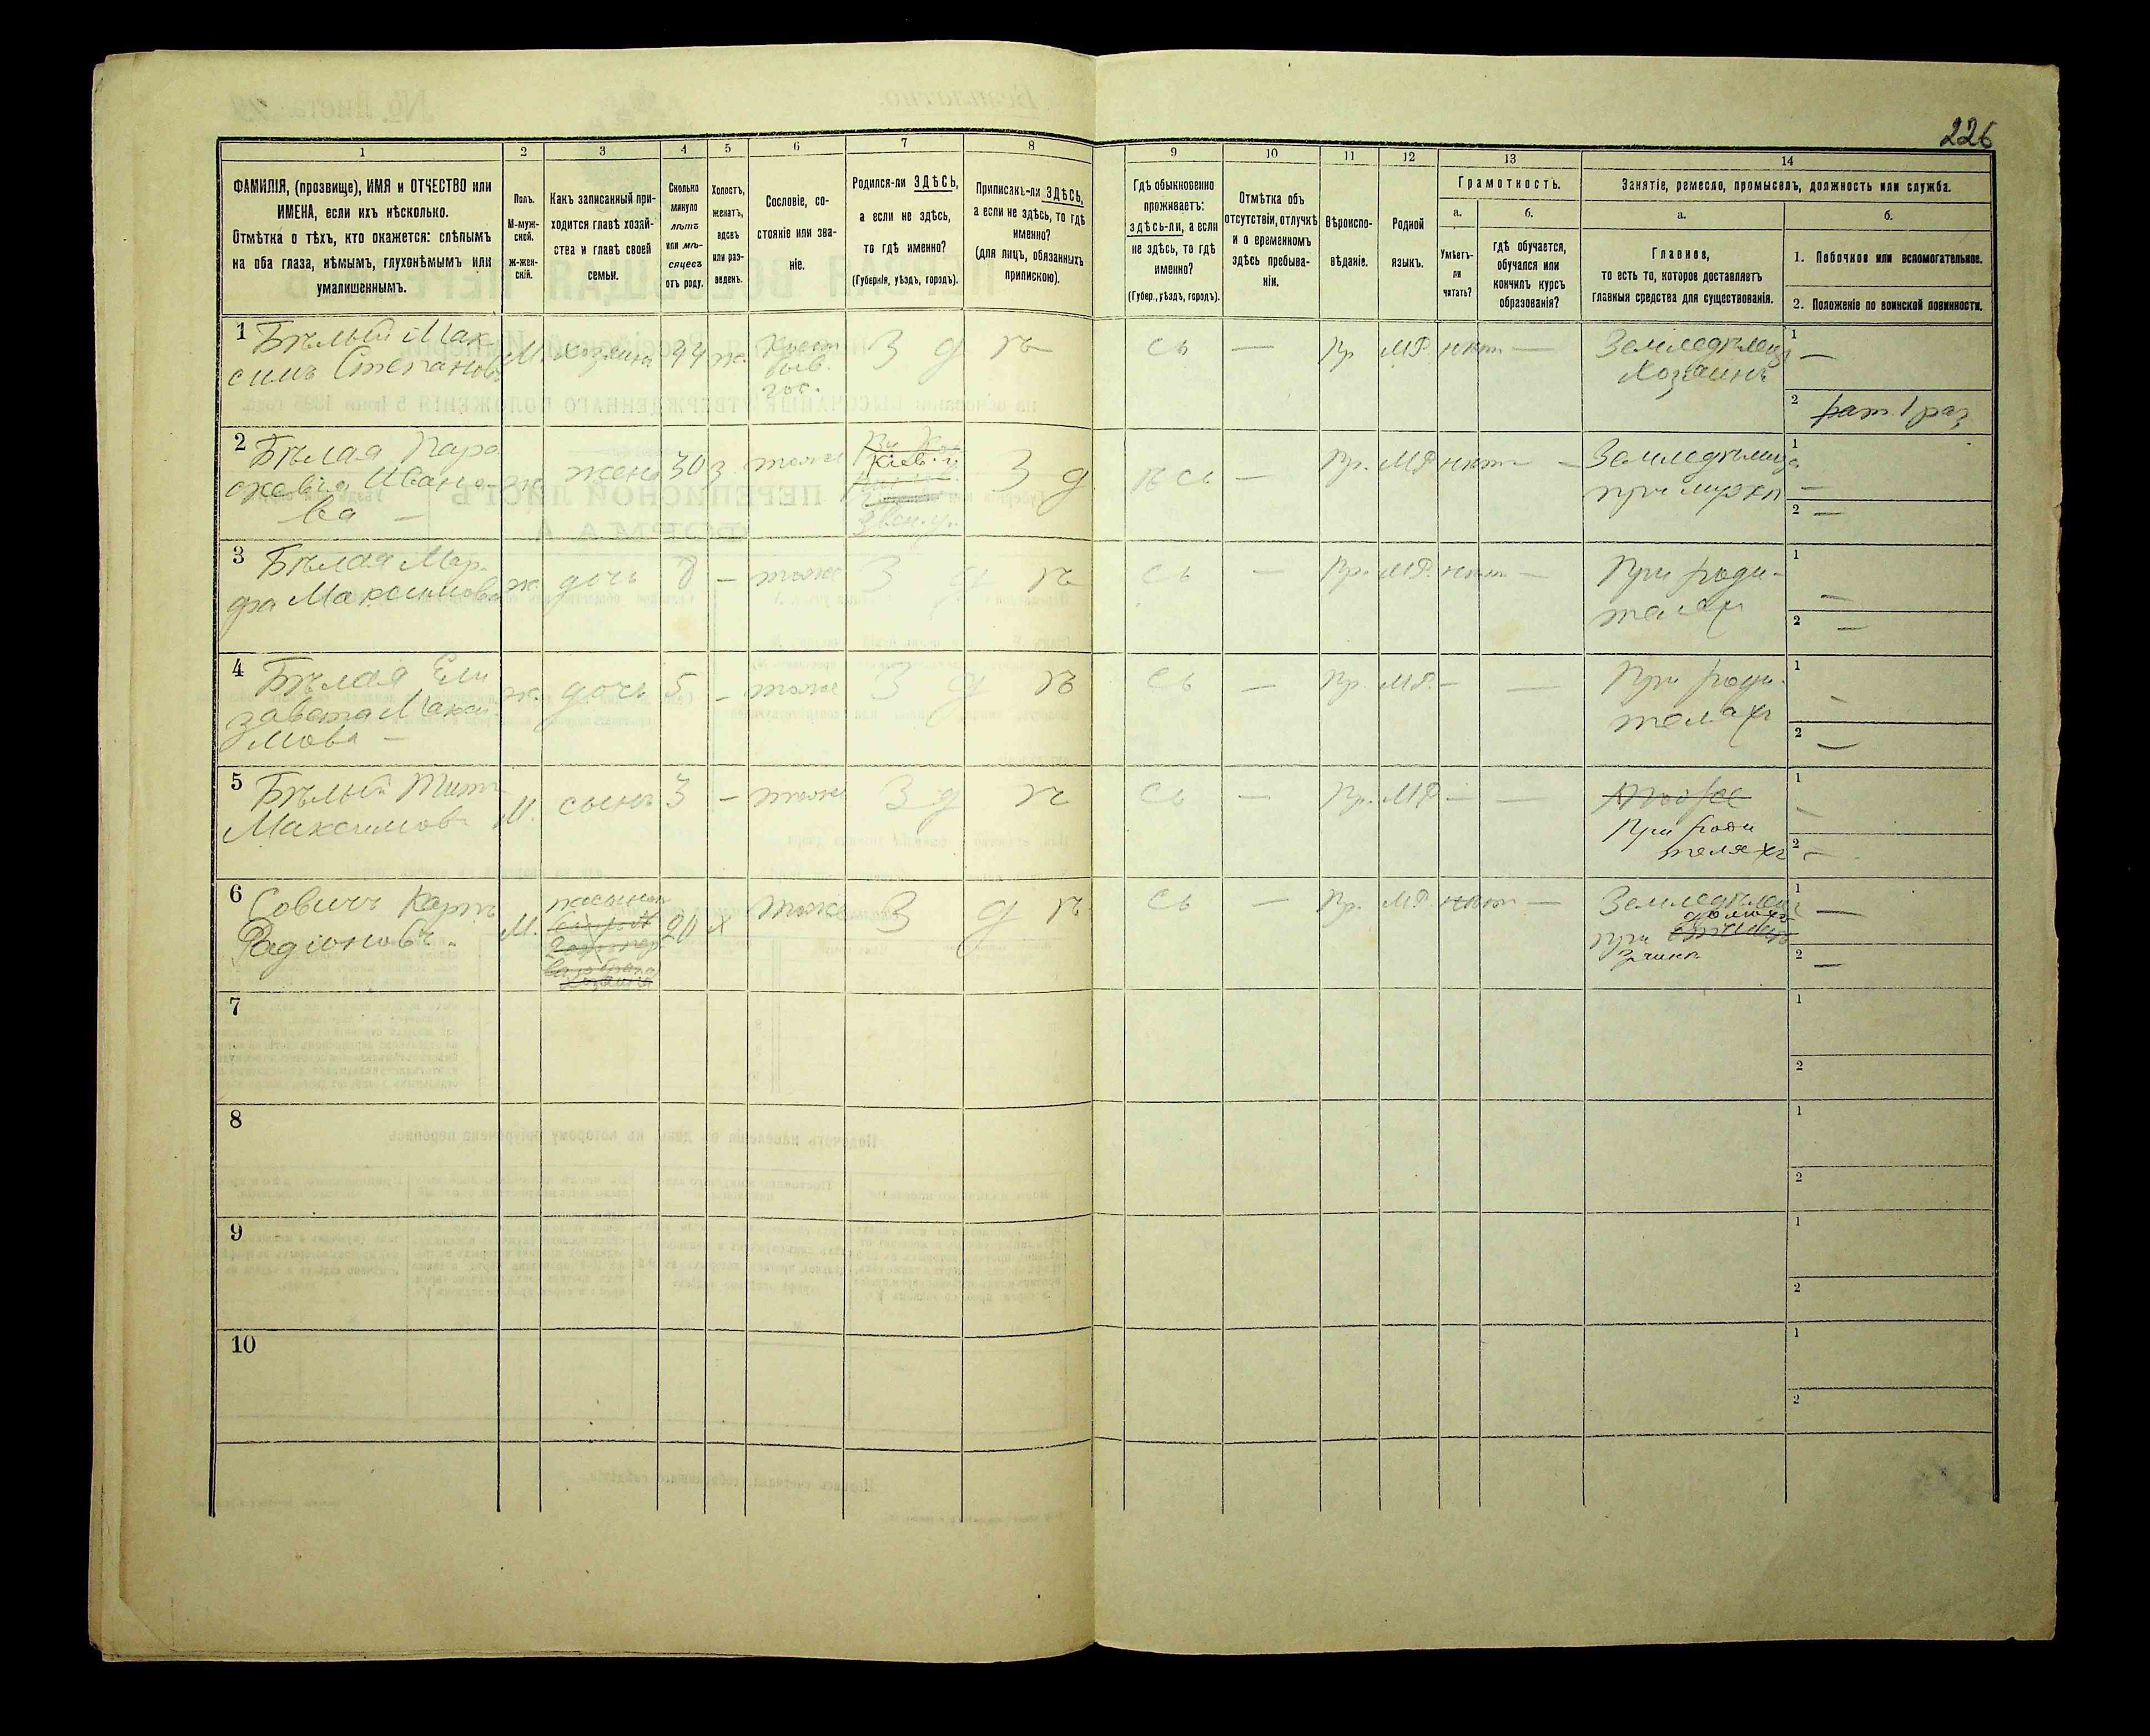 226
1
2
3
4
5
6
7
8
9
10
11
12
13
14
ФАМИЛІЯ, (прозвище), ИМЯ и ОТЧЕСТВО или
ИМЕНА, если ихъ нѣсколько.
Отмѣтка о тѣхъ, кто окажется: слѣпымъ
на оба глаза, нѣмымъ, глухонѣмымъ или
умалишеннымъ.
Полъ.
М-муж-
ской.
ж-жен-
скій.
Какъ записанный при-
ходится главѣ хозяй-
ства и главѣ своей
семьи.
Сколько
минуло
лѣтъ
или мѣ-
сяцевъ
отъ роду.
Холостъ,
женатъ,
вдовъ
или раз-
веденъ.
Сословіе, со-
стояніе или зва-
ніе.
Родился-ли ЗДѢСЬ,
а если не здѣсь,
то гдѣ именно?
(Губернія, уѣздъ, городъ).
Приписанъ-ли ЗДѢСЬ,
а если не здѣсь, то гдѣ
именно?
(для лицъ, обязанныхъ
припискою).
Гдѣ обыкновенно
проживаетъ:
здѣсь-ли, а если
не здѣсь, то гдѣ
именно?
(Губер., уѣздъ, городъ).
Отмѣтка объ
отсутствіи, отлучкѣ
и о временномъ
здѣсь пребыва-
ніи.
Вѣроиспо-
вѣданіе.
Родной
языкъ.
Грамотность.
а.
б.
Умѣетъ-
ли
читать?
гдѣ обучается,
обучался или
кончилъ курсъ
образованія?
Занятіе, ремесло, промыселъ, должность или служба.
а.
б.
Главное,
то есть то, которое доставляетъ
главныя средства для существованія.
1. Побочное или вспомогательное.
2. Положеніе по воинской повинности.
1 Бѣлый Мак-
симъ Степановъ М. хозяинъ 34 ж. Крест. З д ѣ сь — Пр МР. нѣтъ — Земледѣлецъ 1 —
быв. Хозяинъ
гос.
2 рат. 1 раз
2 Бѣлая Пара-
сковія Ивано- ж жена 30 З. тоже З д ѣ сь — Пр. МР. нѣтъ — Земледѣлица 1 —
ва — Кіев. г. при мужѣ 2 —
Звен. у.
3 Бѣлая Мар-
фа Максимова ж дочь 8 — тоже З д ѣ сь — Пр. МР. нѣтъ — При роди- 1 —
теляхъ 2 —
4 Бѣлая Ели
завета Макси- ж. дочь 5 — тоже З д ѣ сь — Пр. МР. — — При роди- 1 —
мова — теляхъ 2 —
5 Бѣлый Титъ
Максимовъ М. сынъ 3 — тоже З д ѣ сь — Пр. МР — — 1 —
При роди
теляхъ 2 —
6 Совичъ Карпъ
Радіоновъ. М. 20 х тоже З д ѣ сь — Пр. МР. нѣтъ — Земледѣлецъ 1 —
при 2 —
7
1
2
8
1
2
9
1
2
10
1
2